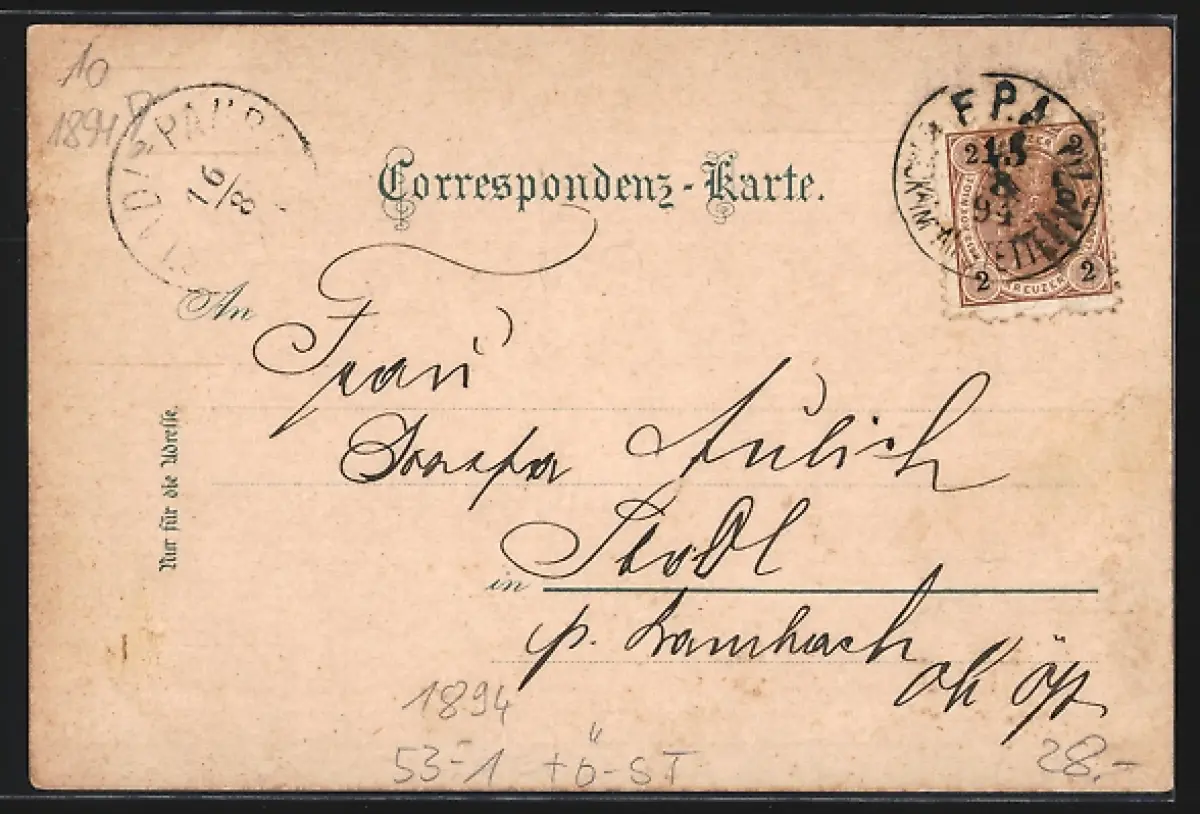 10
1894
16/8
Correspondenz-Karte.
F.P.A.
15
8
94
2 2
2 KREUZER 2
An
Frau
Josefa Aulich
in Stadl
p. Lambach
Ob Öst
Nur für die Adresse.
1894
53-1 + Ö-ST
28.-